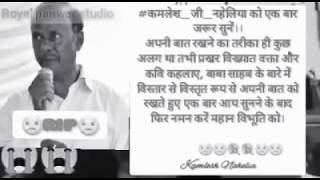 Royal panwar studio
#कमलेश_जी_नहेलिया को एक बार
जरूर सुनें।।
अपनी बात रखने का तरीका ही कुछ
अलग था तभी प्रखर विख्यात वक्ता और
कवि कहलाए, बाबा साहब के बारे में
विस्तार से विस्तृत रूप से अपनी बात को
रखते हुए एक बार आप सुनने के बाद
फिर नमन करें महान विभूति को।
RIP
Kamlesh Nahelia